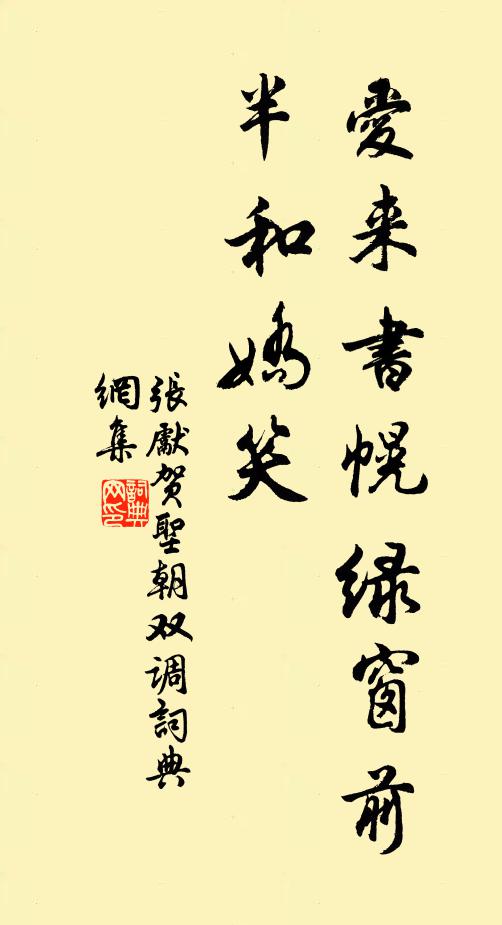 愛来書幌緑窗前
半和嬌笑
張獻贺聖朝双调詞典
網集
詞典网印